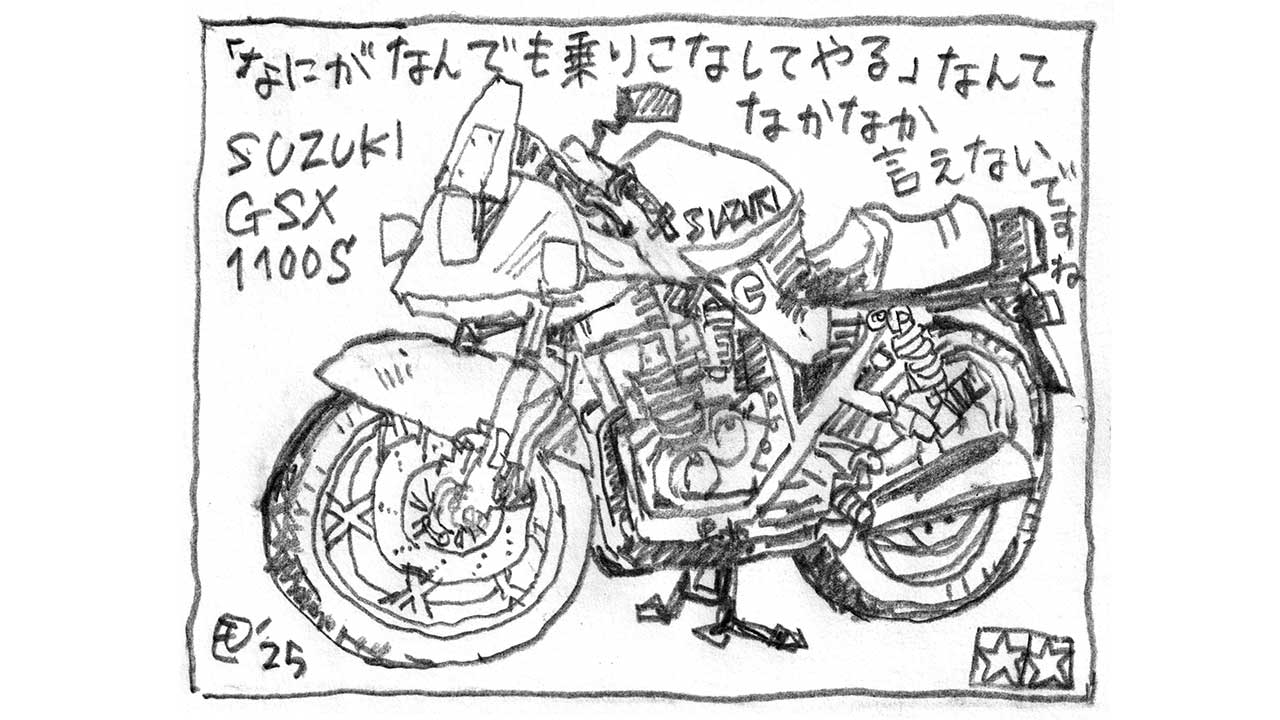 「なにがなんでも乗りこなしてやる」なんて
なかなか
言えないですね
SUZUKI
GSX
1100S
SUZUKI
'25